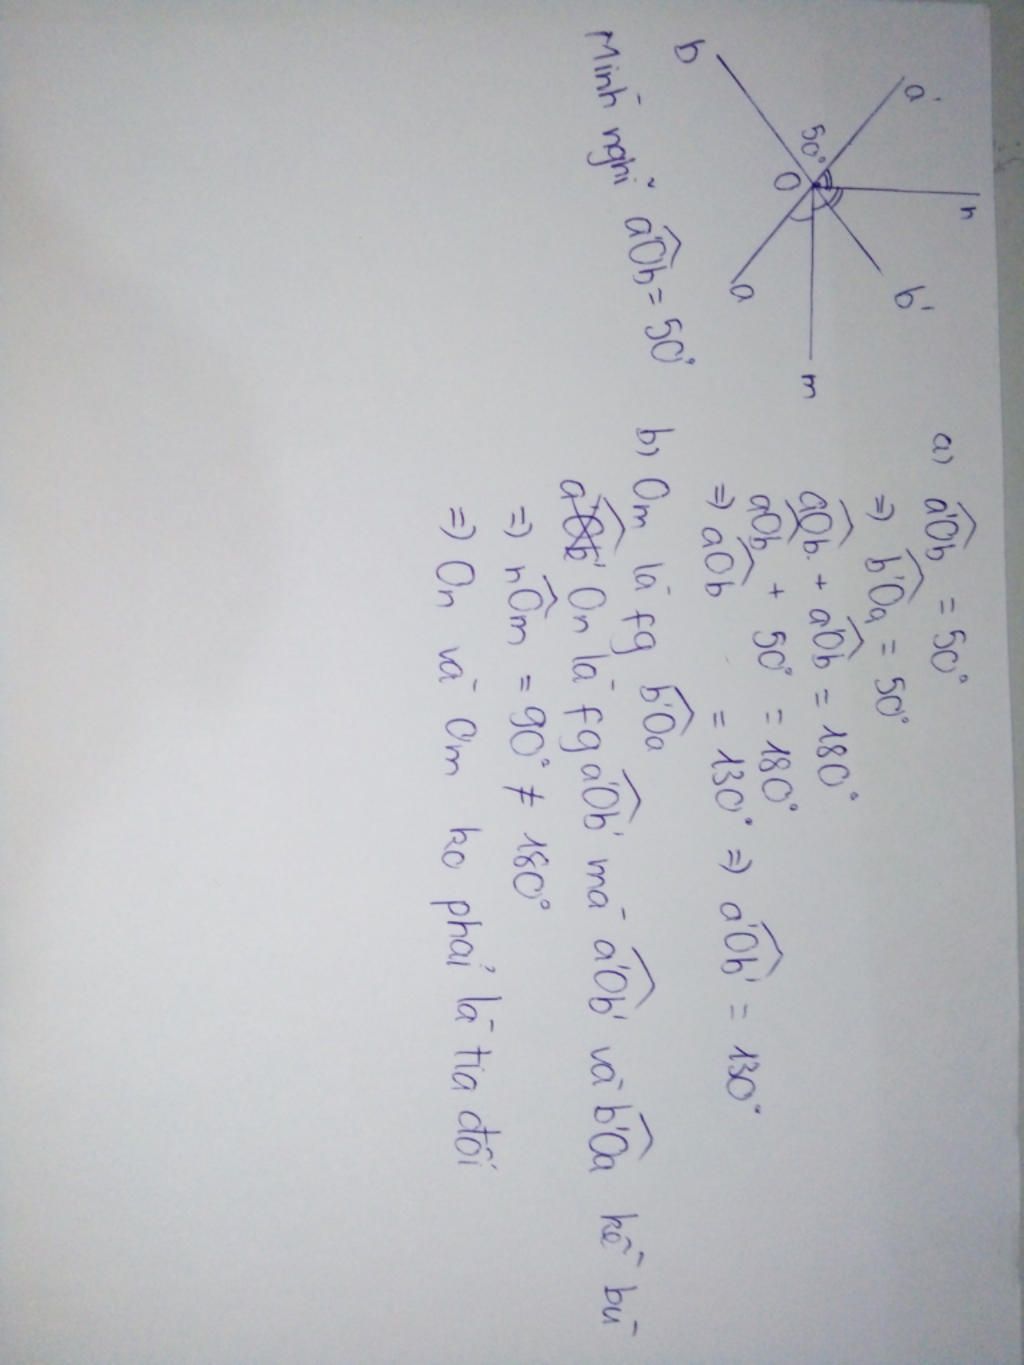 b
a'
50°
O
n
b'
a
m
Minh nghĩ a'Ob = 50°
a) a'Ob = 50°
=> b'Oa = 50°
aOb + a'Ob = 180°
aOb + 50° = 180°
=> aOb = 130° => a'Ob' = 130°
b) Om là fg b'Oa
On là fg a'Ob' mà a'Ob' và b'Oa kề bù
=> nOm = 90° ≠ 180°
=> On và Om ko phải là tia đối